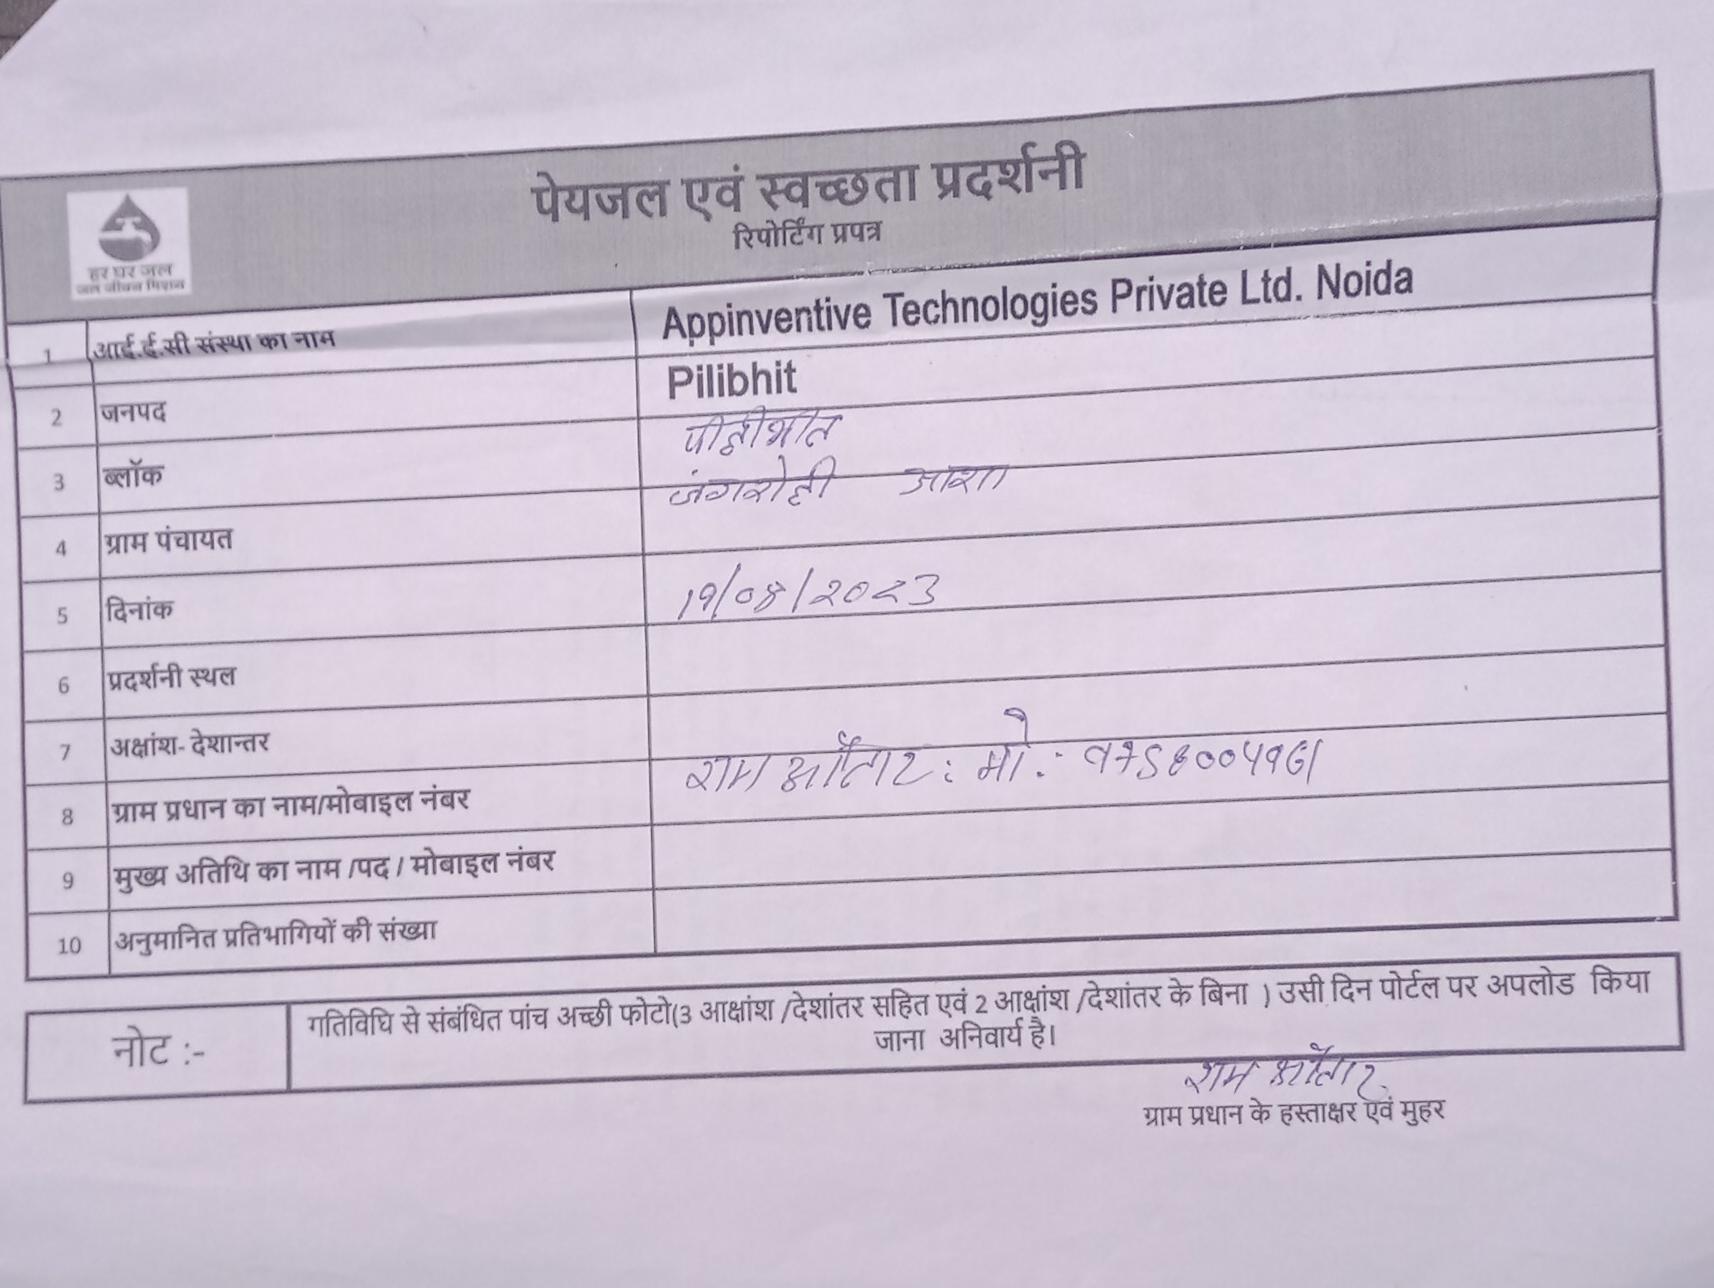 पेयजल एवं स्वच्छता प्रदर्शनी
रिपोर्टिंग प्रपत्र
हर घर जल
जल जीवन मिशन
1 आई.ई.सी संस्था का नाम Appinventive Technologies Private Ltd. Noida
2 जनपद Pilibhit
3 ब्लॉक पीलीभीत
4 ग्राम पंचायत जंगरोली आशा
5 दिनांक 19/08/2023
6 प्रदर्शनी स्थल
7 अक्षांश- देशान्तर
8 ग्राम प्रधान का नाम/मोबाइल नंबर राम औतार : मो.:-
9 मुख्य अतिथि का नाम /पद / मोबाइल नंबर
10 अनुमानित प्रतिभागियों की संख्या
नोट :- गतिविधि से संबंधित पांच अच्छी फोटो(3 आक्षांश /देशांतर सहित एवं 2 आक्षांश /देशांतर के बिना ) उसी दिन पोर्टल पर अपलोड किया
जाना अनिवार्य है।
राम औतार
ग्राम प्रधान के हस्ताक्षर एवं मुहर